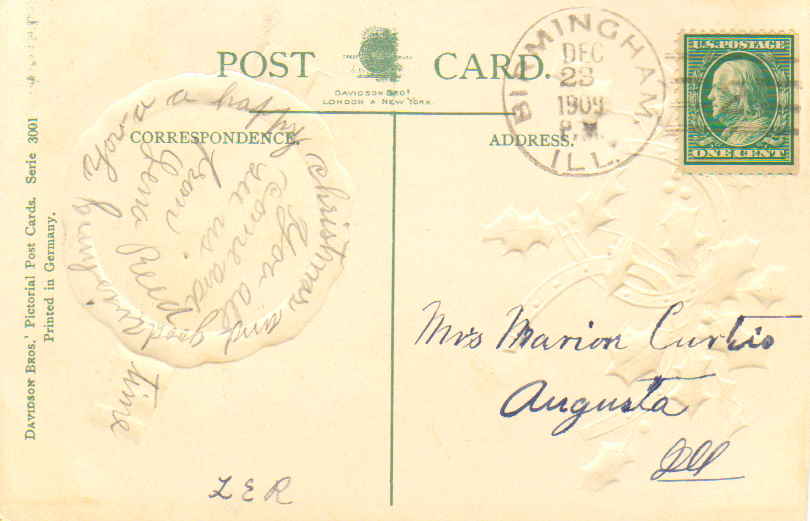 POST CARD.
DAVIDSON BROS
LONDON & NEW YORK
BIRMINGHAM,
DEC
23
1909
P.M.
ILL.
U.S. POSTAGE
ONE CENT
CORRESPONDENCE.
ADDRESS.
a happy christmas and
good time
you all
come and
see us
from
Lena
Mrs Marion Curtis
Augusta
Ill
LER
DAVIDSON BROS.' Pictorial Post Cards. Serie 3001
Printed in Germany.